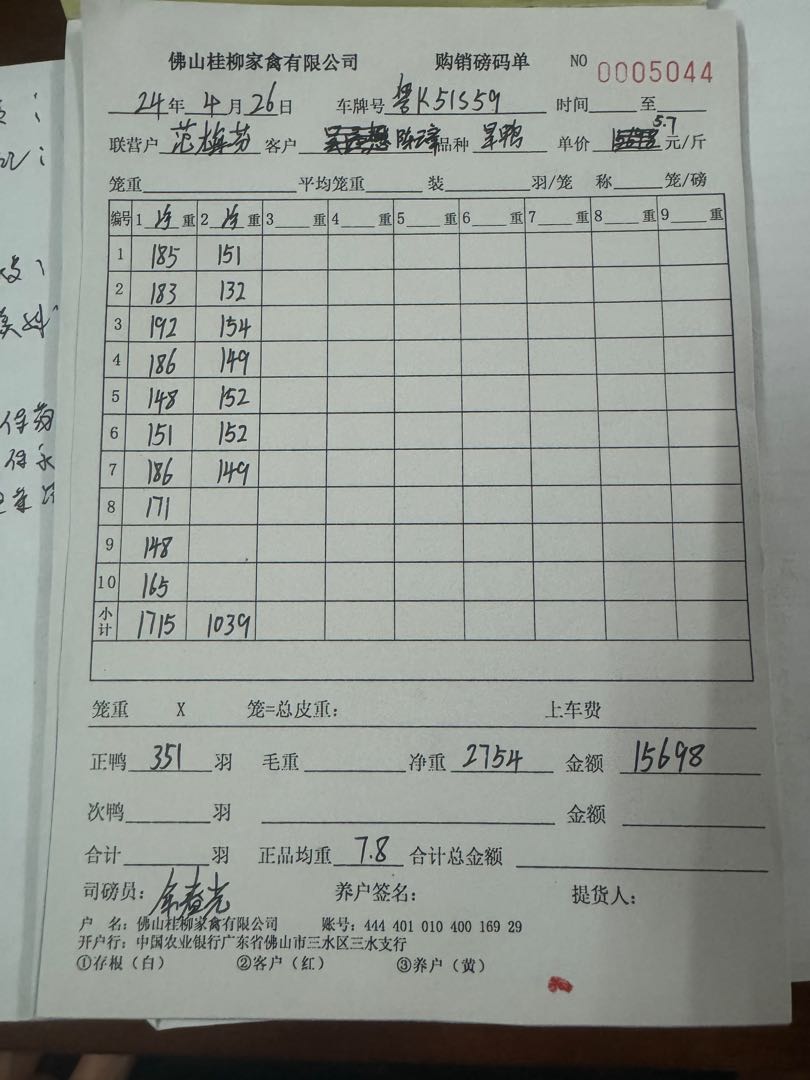 佛山桂柳家禽有限公司 购销磅码单 NO 0005044
24年4月26日 车牌号 粤K51S59 时间 至
联营户 范梅芬 客户 陈 品种 旱鸭 单价 5.7 元/斤
笼重 平均笼重 装 羽/笼 称 笼/磅
编号 1 净 重 2 净 重 3 重 4 重 5 重 6 重 7 重 8 重 9 重
1 185 151
2 183 132
3 192 154
4 186 149
5 148 152
6 151 152
7 186 149
8 171
9 148
10 165
小计 1715 1039
笼重 X 笼=总皮重: 上车费
正鸭 351 羽 毛重 净重 2754 金额 15698
次鸭 羽 金额
合计 羽 正品均重 7.8 合计总金额
司磅员: 养户签名: 提货人:
户 名: 佛山桂柳家禽有限公司 账号: 444 401 010 400 169 29
开户行: 中国农业银行广东省佛山市三水区三水支行
①存根（白） ②客户（红） ③养户（黄）